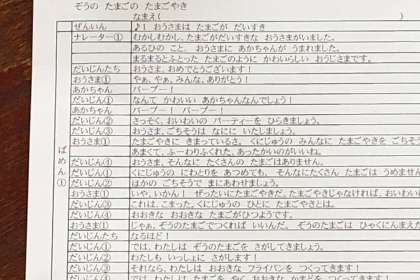 ぞうの たまごの たまごやき
なまえ( )
ぜんいん ♪1 おうさまは たまごが だいすき
ナレーター① むかしむかし、たまごがだいすきな おうさまがいました。
あるひの こと、 おうさまに あかちゃんが うまれました。
まるまるとふとった たまごのように かわいらしい おうじさまです。
だいじんたち おうさま、おめでとうございます!
おうさま① やぁ、やぁ、みんな、ありがとう!
あかちゃん バーブー!
だいじん① なんて かわいい あかちゃんなんでしょう!
あかちゃん バーブー!
だいじん② さっそく、おいわいの パーティーを ひらきましょう。
だいじん③ おうさま、ごちそうは なにに いたしましょう。
おうさま① たまごやきに きまっているさ。くにじゅうの みんなに たまごやきを ごちそう
あまくて、ふーわりふくれた、あったかいのがいいね。
だいじん④ おうさま、そんなに たくさんの たまごはありません。
だいじん① くにじゅうの にわとりを あつめても、そんなにたくさん たまごは うめません
だいじん② ほかの ごちそうで まにあわせましょう。
おうさま① いや、いかん! ぜったいにたまごやきだ。たまごやきじゃなければ、おいわい
だいじん③ これは、こまった。くにじゅうの ひとに たまごやきとは。
だいじん④ おおきな おおきな たまごがひつようです。
おうさま① じゃぁ、ぞうのたまごでつくればいいんだ。 ぞうのたまごは ひゃくにんまえ
だいじんたち なるほど!
だいじん① では、わたしは ぞうのたまごを さがしてきましょう。
だいじん② わたしも いっしょに さがします!
だいじん③ それなら、わたしは おおきな フライパンを つくってきます!
ばめん①